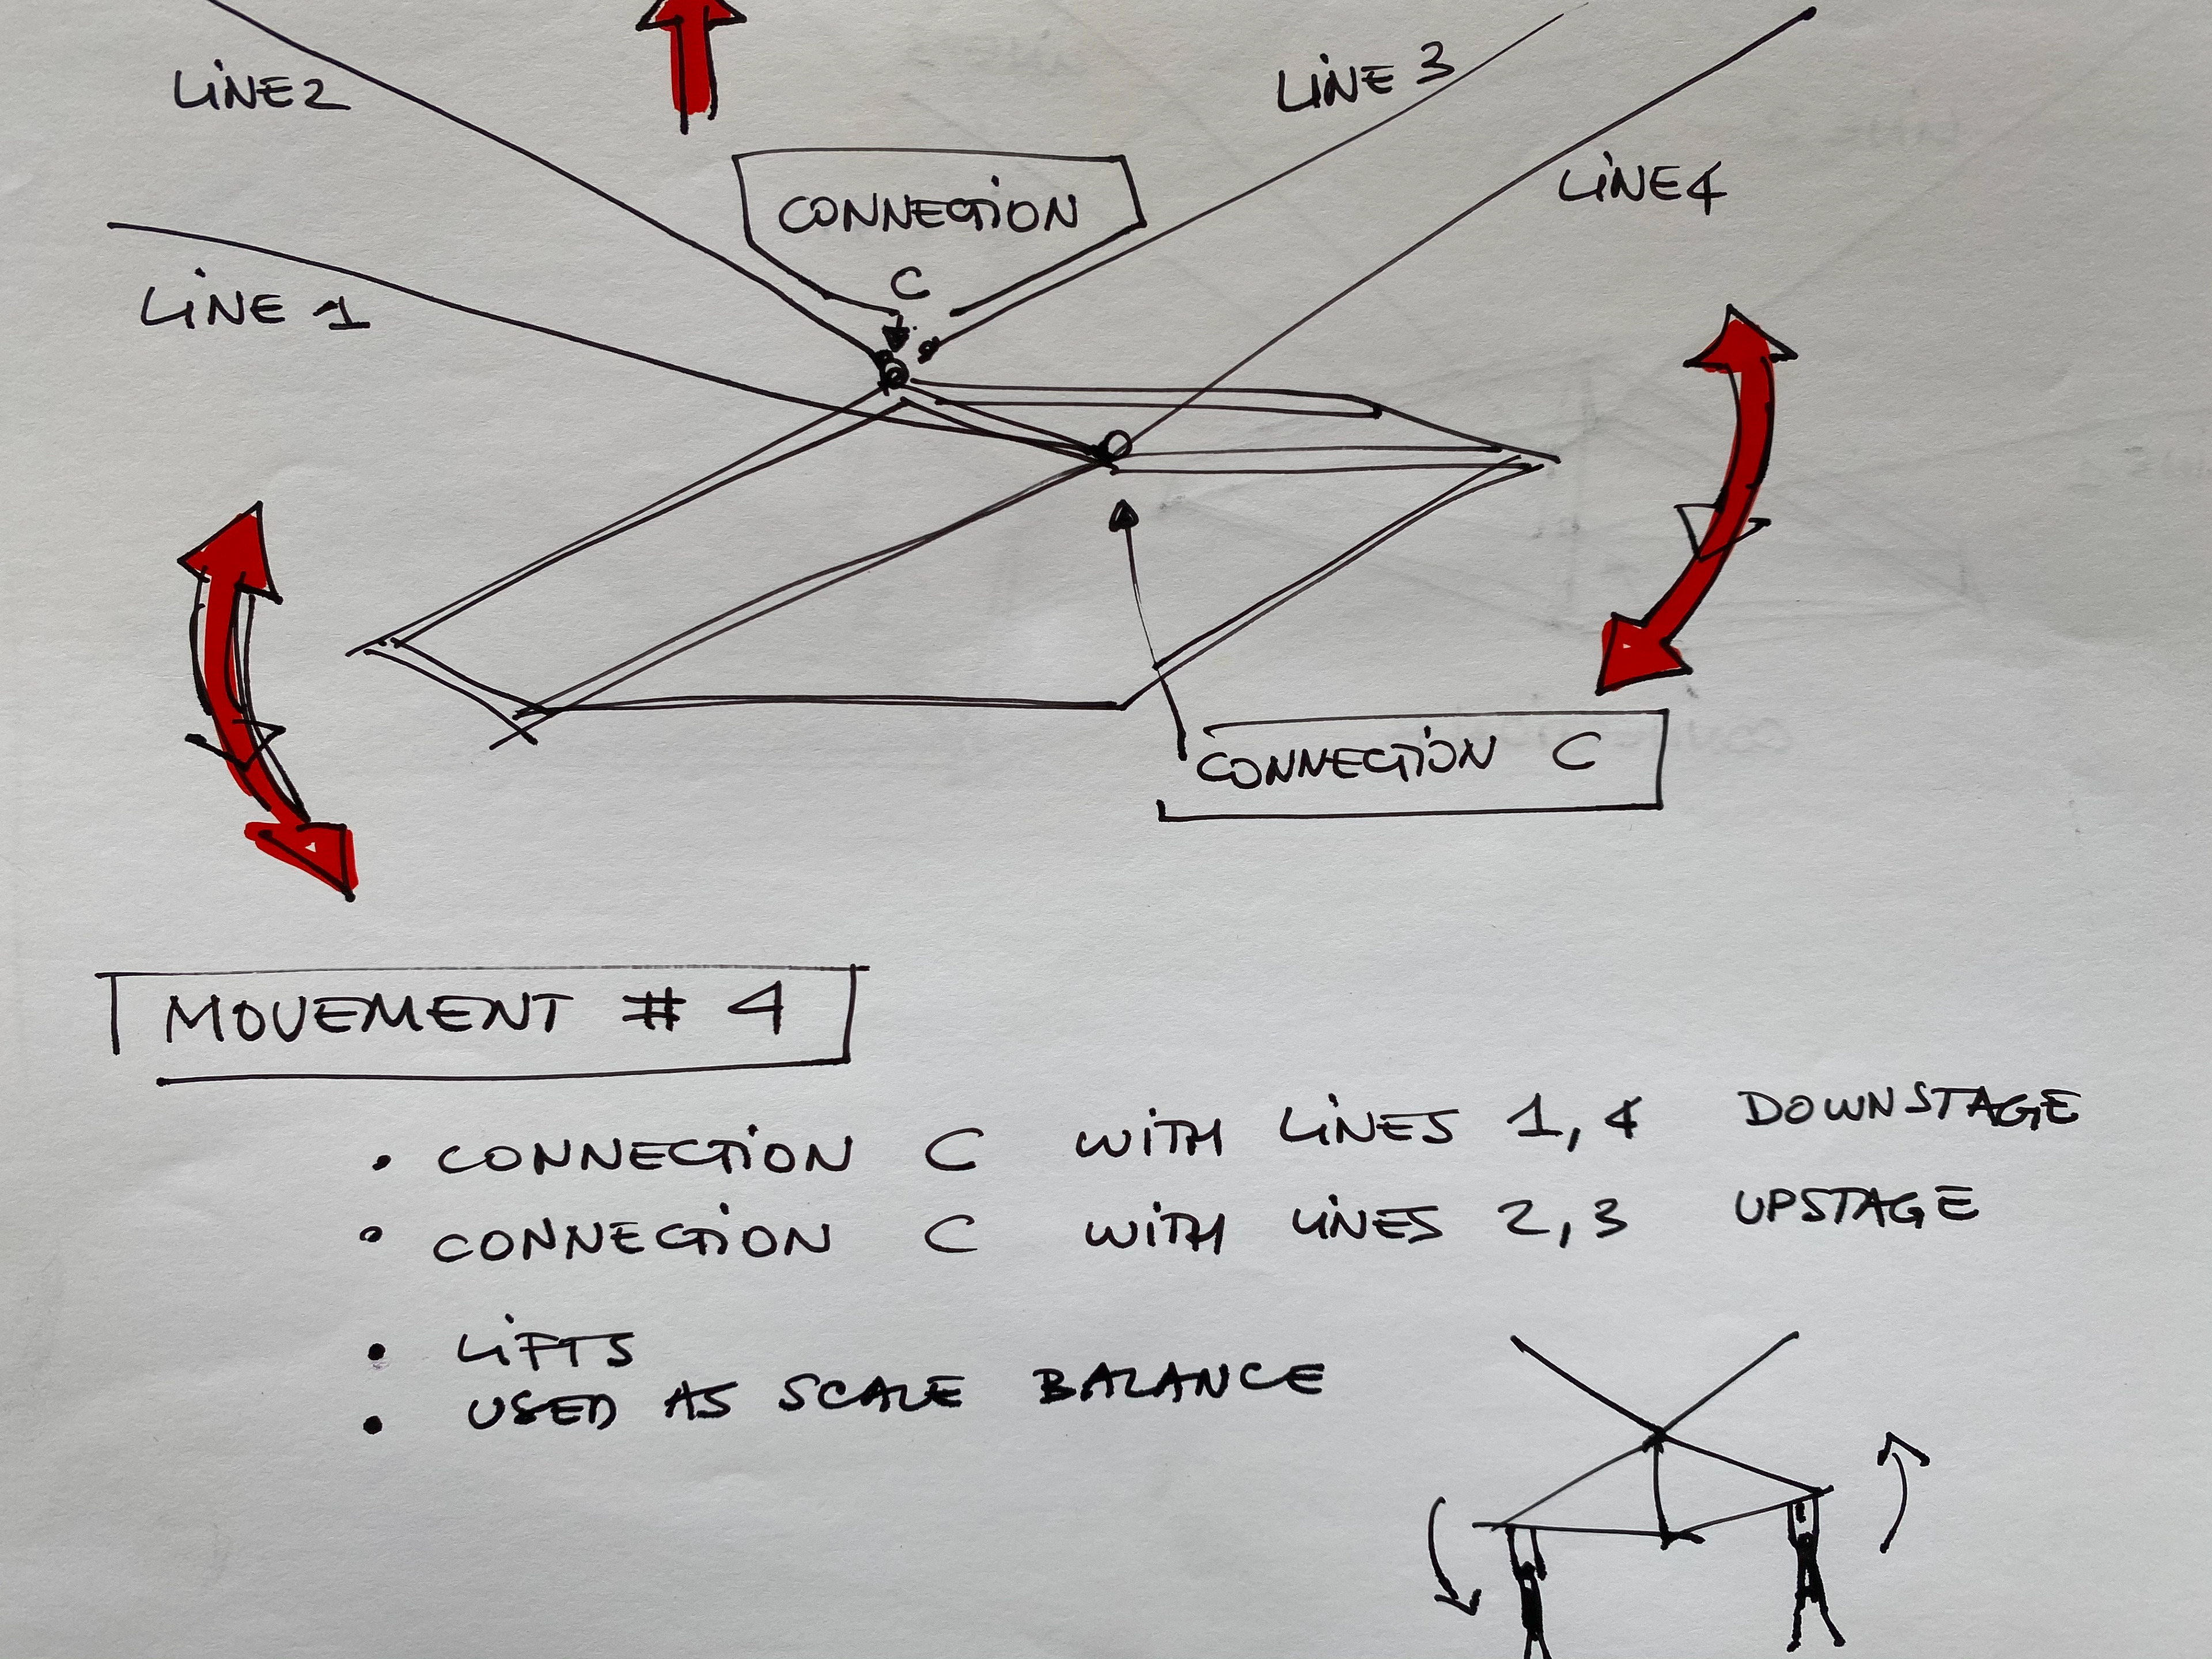 LINE 2
LINE 3
LINE 4
CONNECTION
C
LINE 1
CONNECTION C
MOVEMENT # 4
• CONNECTION C WITH LINES 1, 4 DOWNSTAGE
• CONNECTION C WITH LINES 2, 3 UPSTAGE
• LIFTS
• USED AS SCALE BALANCE